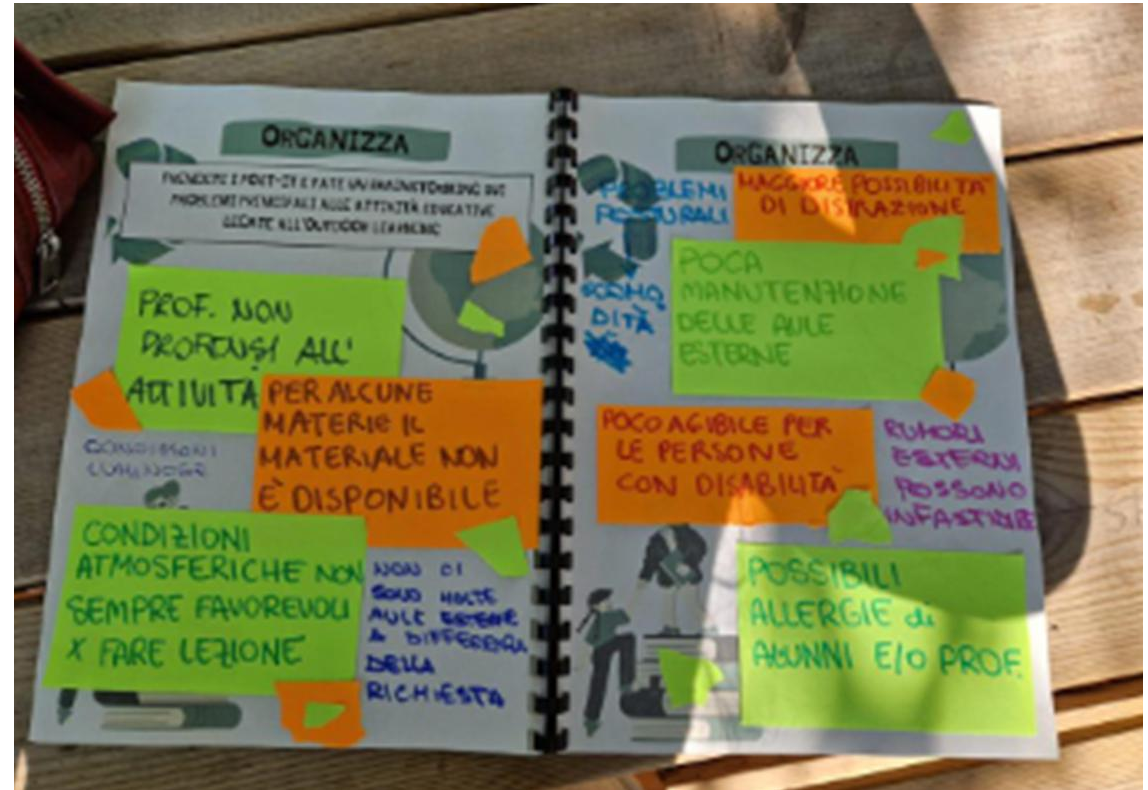 ORGANIZZA
PRENDETE I POST-IT E FATE UN BRAINSTORMING SUI
PROBLEMI PRINCIPALI ALLE ATTIVITÀ EDUCATIVE
LEGATE ALL'OUTDOOR LEARNING
PROF. NON
PROPENSI ALL'
ATTIVITÀ
PER ALCUNE
MATERIE IL
MATERIALE NON
È DISPONIBILE
CONDIZIONI
LUMINOSE
CONDIZIONI
ATMOSFERICHE NON
SEMPRE FAVOREVOLI
X FARE LEZIONE
NON CI
SONO MOLTE
AULE ESTERNE
A DIFFERENZA
DELLA
RICHIESTA
ORGANIZZA
PROBLEMI
POSTURALI
SCOMO
DITÀ
MAGGIORE POSSIBILITÀ
DI DISTRAZIONE
POCA
MANUTENZIONE
DELLE AULE
ESTERNE
POCO AGIBILE PER
LE PERSONE
CON DISABILITÀ
RUMORI
ESTERNI
POSSONO
POSSIBILI
ALLERGIE di
ALUNNI E/O PROF.